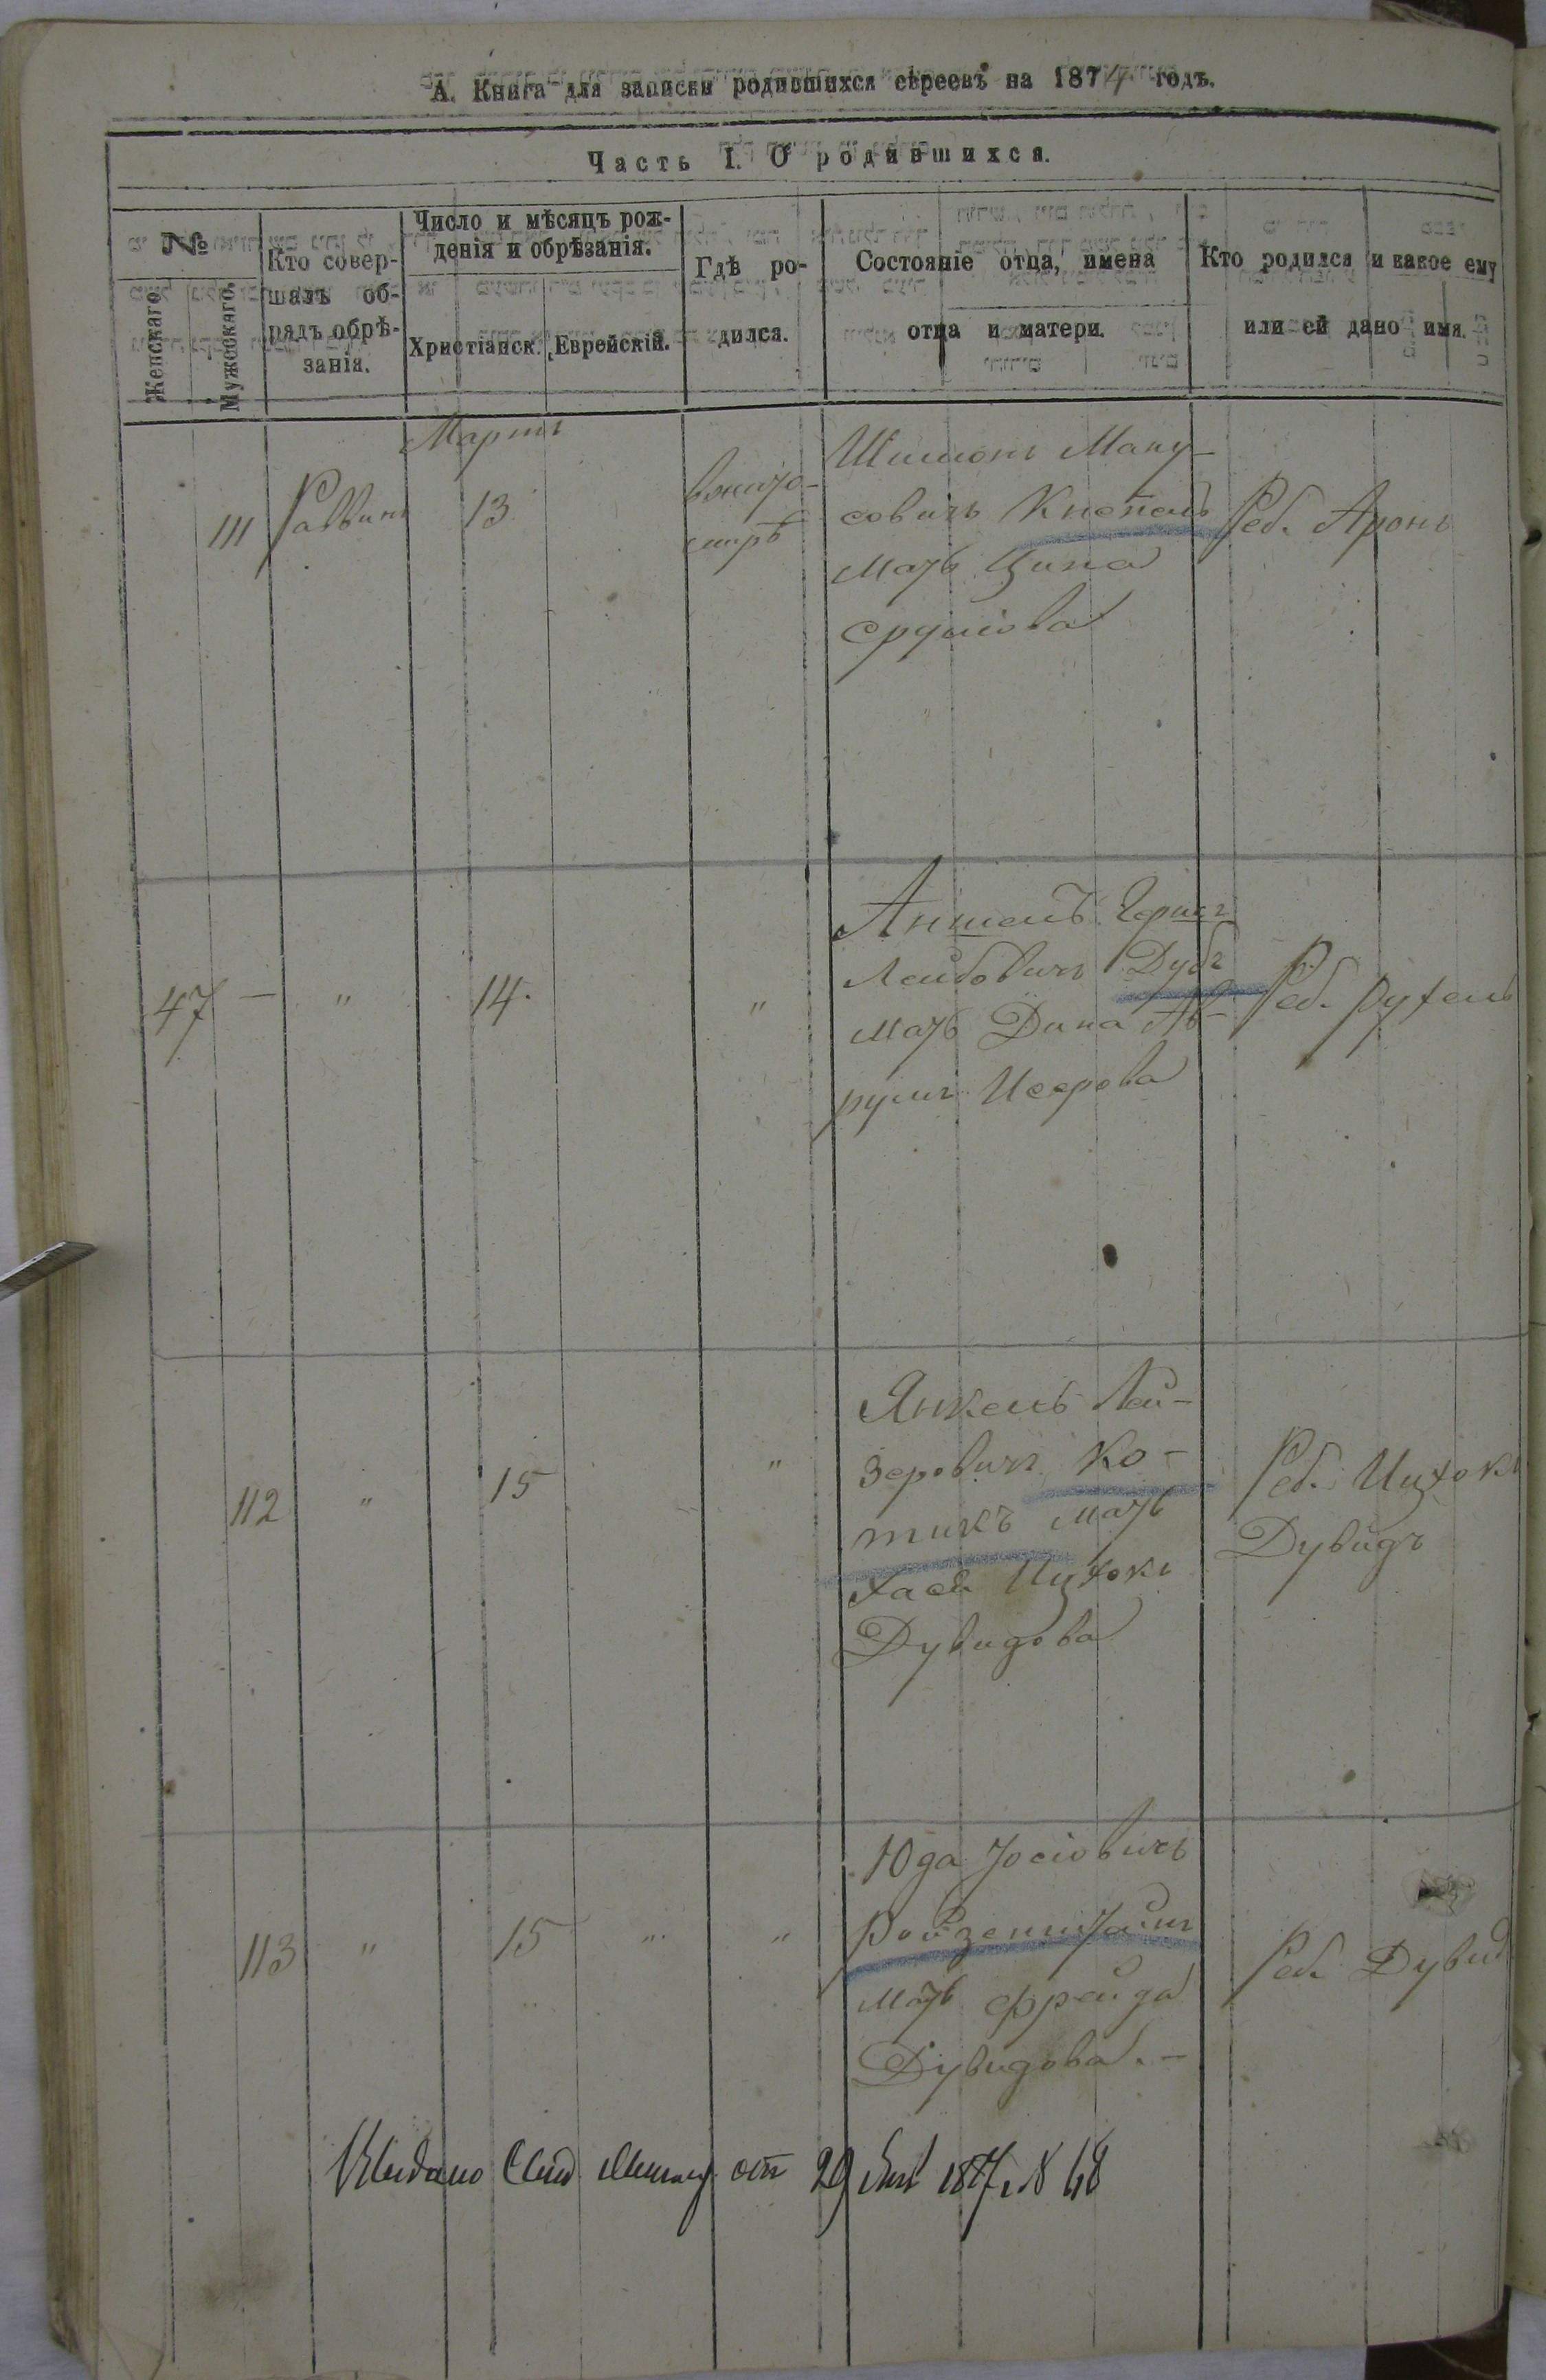 А. Книга для записки родившихся евреевъ на 1874 годъ.
Часть I. О родившихся.
№
Женскаго.
Мужескаго.
Кто совер-
шалъ об-
рядъ обрѣ-
занія.
Число и мѣсяцъ рож-
денія и обрѣзанія.
Христіанск.
Еврейскій.
Гдѣ ро-
дился.
Состояніе отца, имена
отца и матери.
Кто родился и какое ему
или ей дано имя.
Мартъ
111 Раввинъ 13 Вжито-
мирѣ
Шимонъ Ману-
совичъ Кнепель
мать Цина
Сруліова
Реб. Аронъ
47 — " 14. "
Аншель Герш
Лейбовичъ Дубъ
мать Дина Ав-
румъ Исерова
Реб. Рухель
112 " 15 "
Янкель Лей-
зеровичъ Ко-
тикъ мать
Хася Ицхокъ
Дувидова
Реб. Ицхокъ
Дувидъ
113 " 15 " "
Юда Іосіовичъ
Ройзенштейнъ
мать Фрейда
Дувидова. —
Реб. Дувид
Выдано от 29 № 68